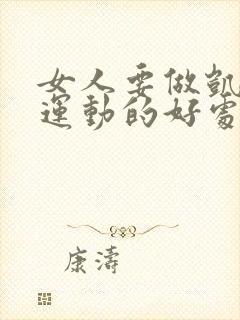 女人要做凱
運動的好處
康濤